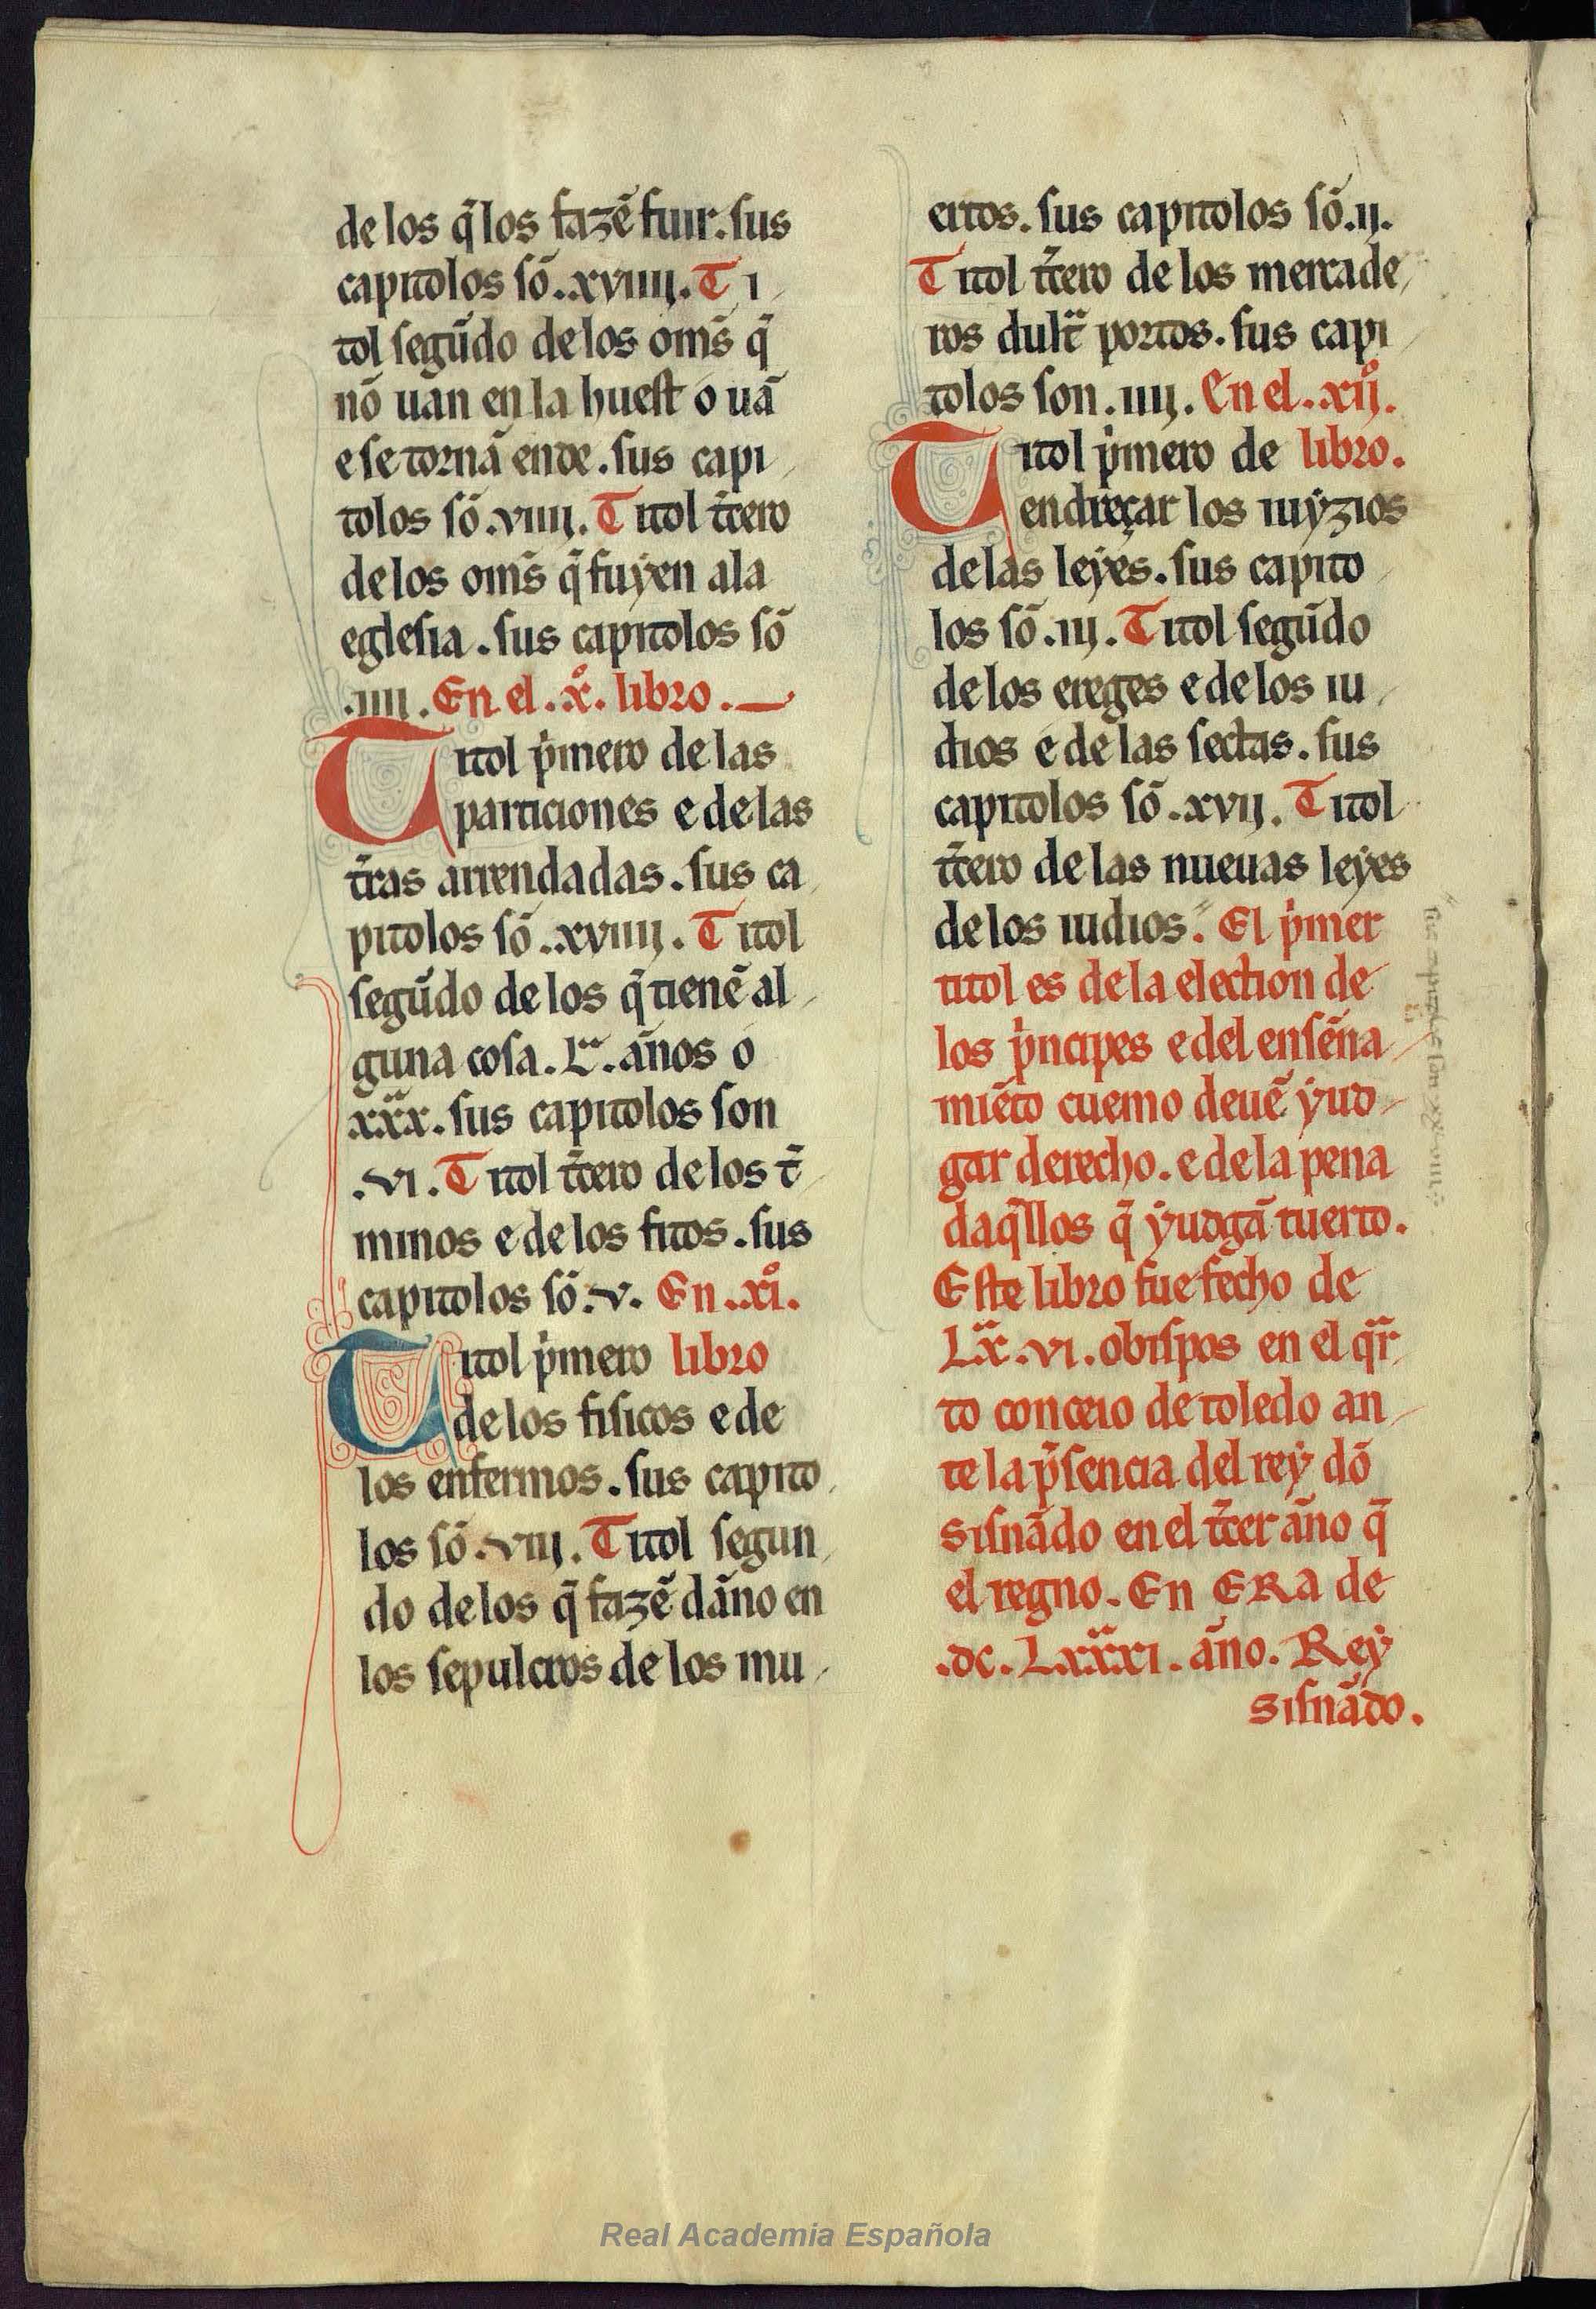 de los q̄ los fazẽ fuir. sus
capitolos sõ .xviiij. Ti
tol segũdo de los om̃s q̄
nõ uan en la huest o uã
e se tornã ende. sus capi
tolos sõ .viiij. Titol t̃cero
de los om̃s q̄ fuyen ala
eglesia. sus capitolos sõ
.iiij. En el .x̊. libro.
Titol p̍mero de las
particiones e de las
t̃ras arrendadas. sus ca
pitolos sõ .xviiij. Titol
segũdo de los q̄ tienẽ al
guna cosa .L. ãnos o
xxx. sus capitolos son
.vi. Titol t̃cero de los t̃
minos e de los fitos. sus
capitolos sõ .v. En .xi̊.
Titol p̍mero libro
de los fisicos e de
los enfermos. sus capito
los sõ .viij. Titol segun
do de los q̄ fazẽ dãno en
los sepulcros de los mu
ertos. sus capitolos sõ .ij.
Titol t̃cero de los mercade
ros dult̃ portos. sus capi
tolos son .iiij. En el .xij̊.
Titol p̍mero de libro.
endreçar los iuyzios
de las leyes. sus capito
los sõ .iij. Titol segũdo
de los ereges e de los iu
dios e de las sectas. sus
capitolos sõ .xvij. Titol
t̃cero de las nueuas leyes
de los iudios. El p̍mer
titol es de la election de
los p̍ncipes e del ensẽna
miẽto cuemo deuẽ yud
gar derecho. e de la pena
daq̄llos q̄ yudgã tuerto.
Este libro fue fecho de
Lx.vi. obispos en el qr̃
to conceio de toledo an
te la p̃sencia del rey dõ
sisnãdo en el t̃cer ãno q̄
el regno. En ERa de
.dc. Lxxxi. ãno. Rey
sisnãdo.
Real Academia Española